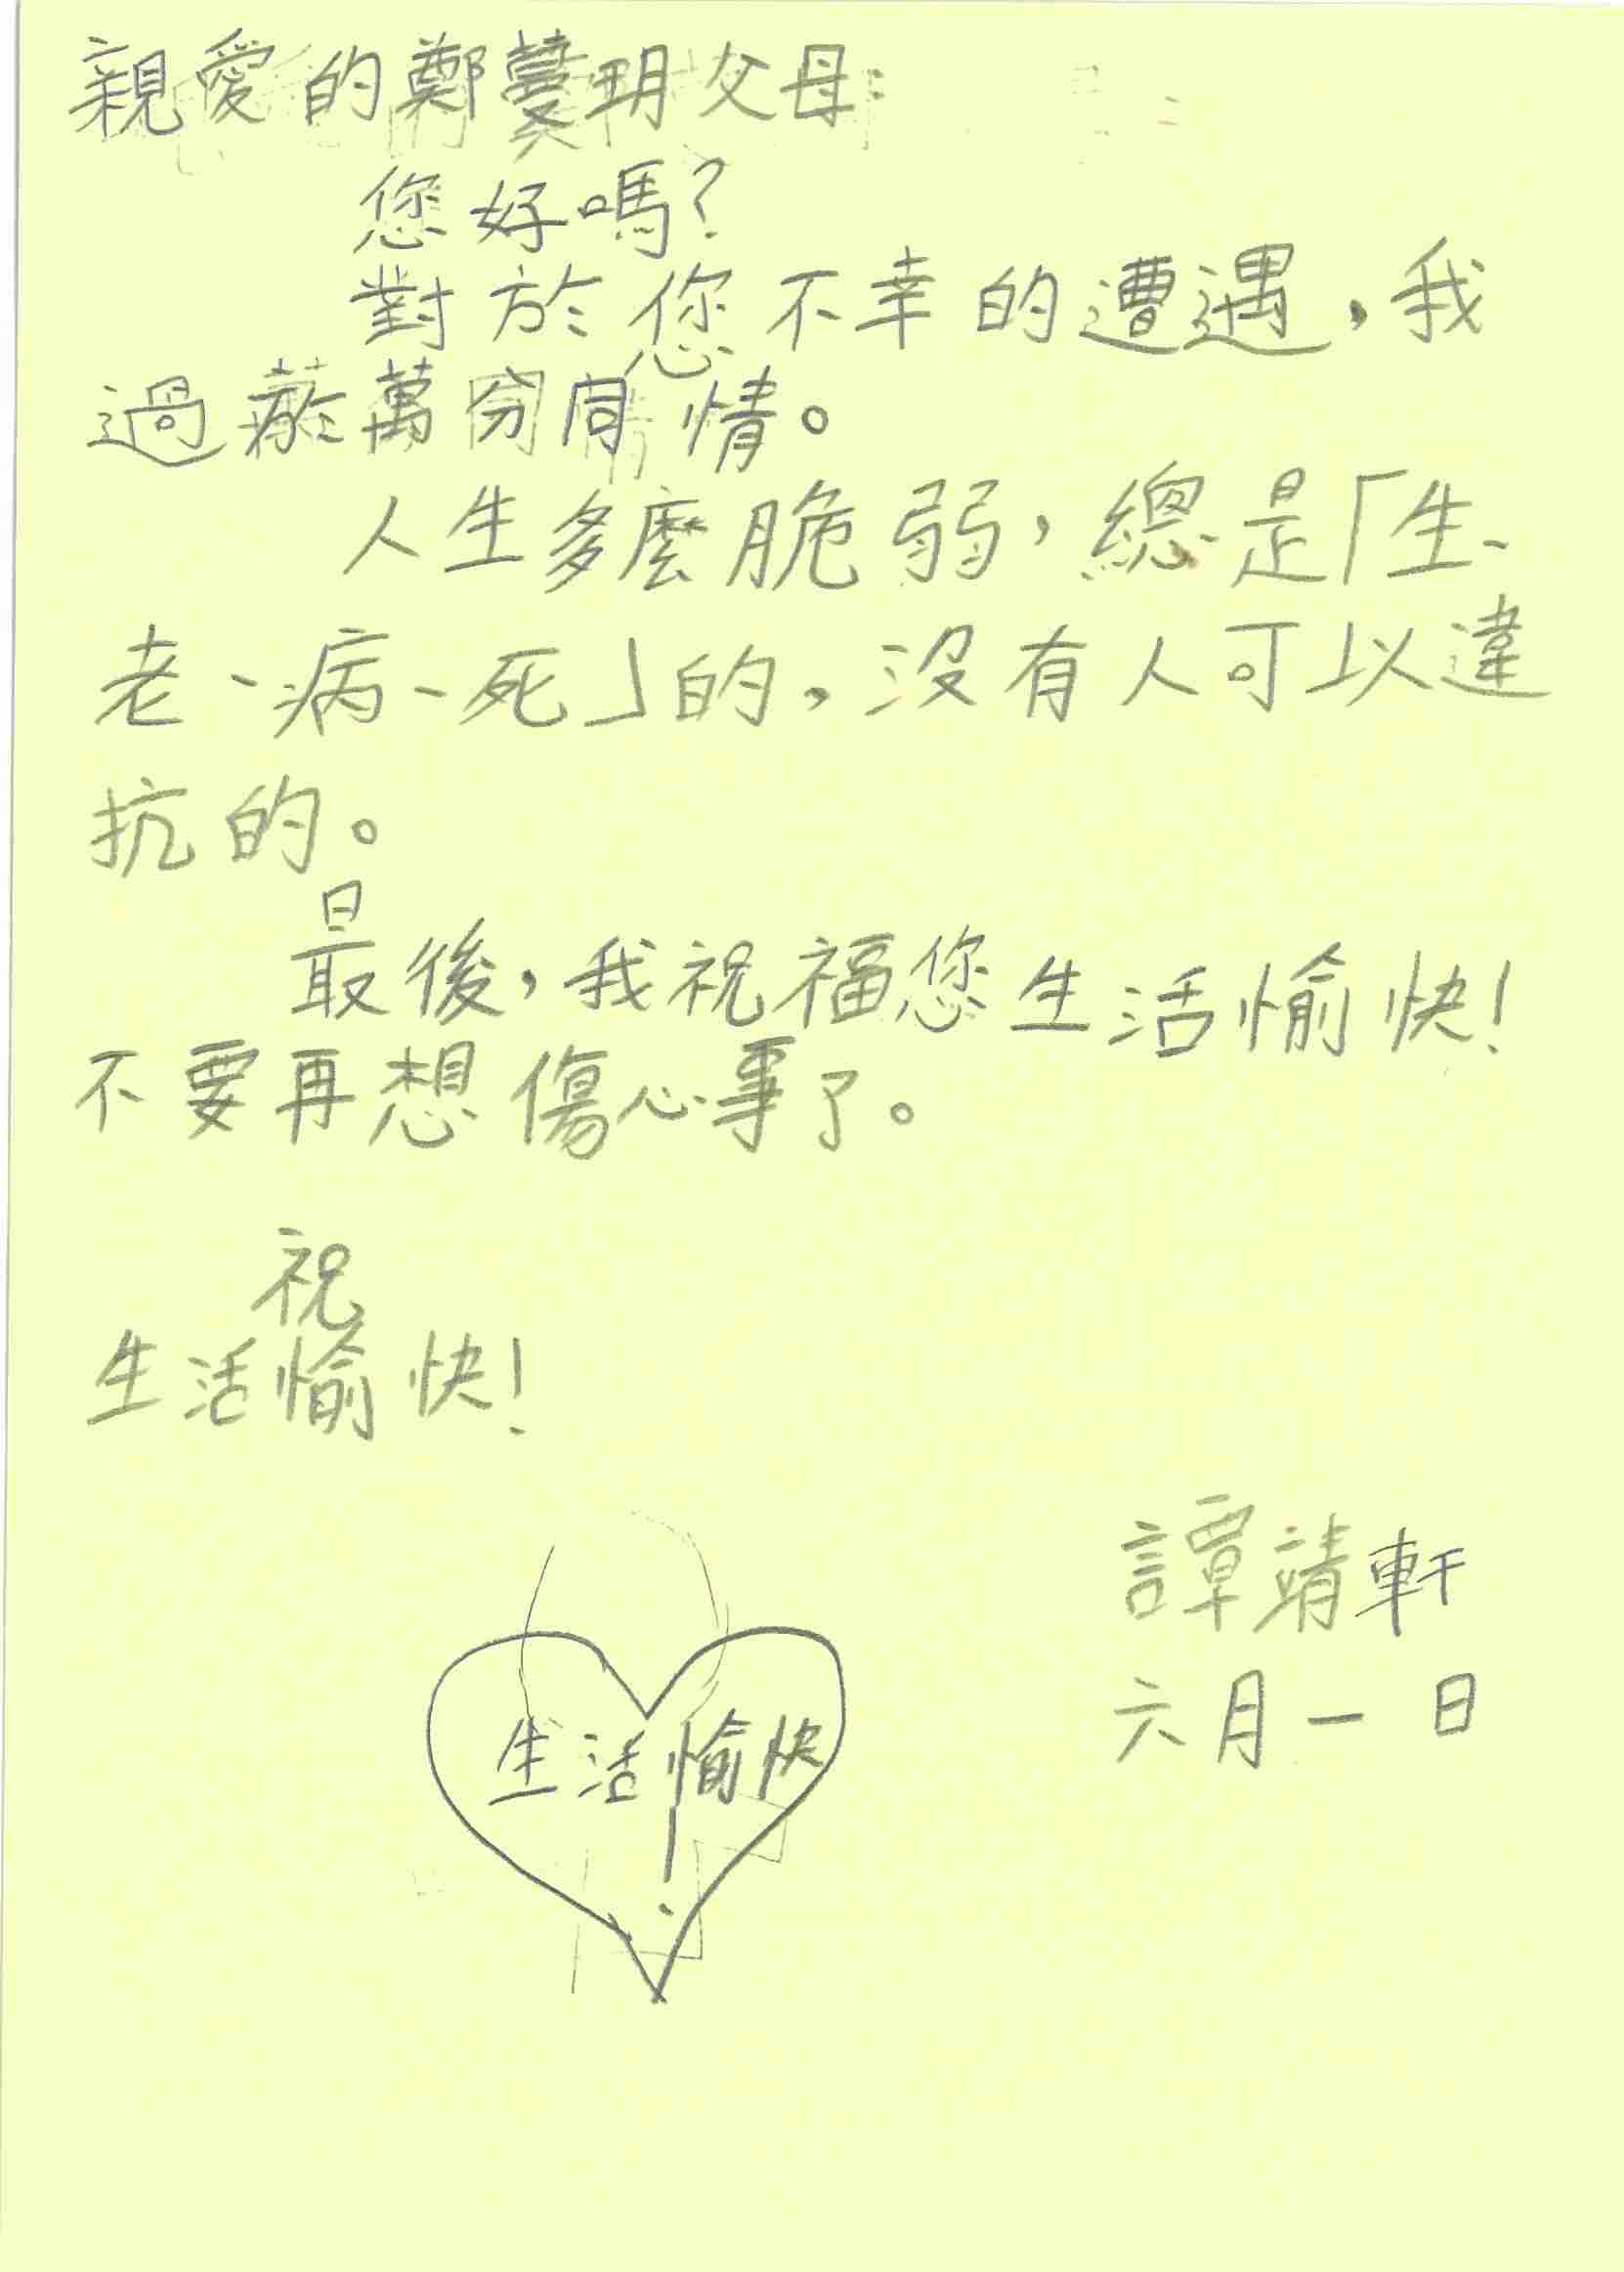 親愛的鄭蔓玥父母：
您好嗎？
對於您不幸的遭遇，我
過萬分同情。
人生多麼脆弱，總是「生、
老、病、死」的，沒有人可以違
抗的。
最後，我祝福您生活愉快！
不要再想傷心事了。
祝
生活愉快！
譚靖軒
六月一日
生活愉快
！